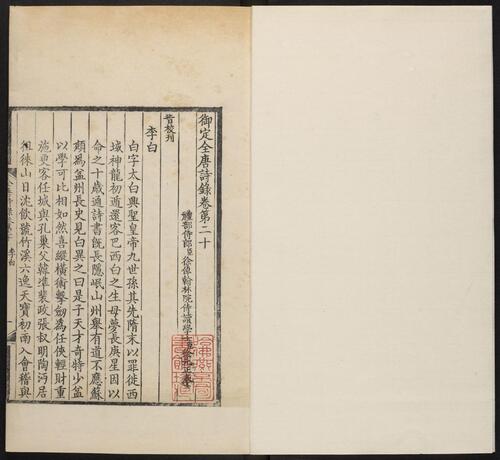 御定全唐詩錄卷第二十
禮部侍郎臣徐倬翰林院侍讀學士臣徐元正奉
旨校刊
李白
白字太白興聖皇帝九世孫其先隋末以罪徙西
域神龍初遁還客巴西白之生母夢長庚星因以
命之十歲通詩書既長隱岷山州舉有道不應蘇
頲為益州長史見白異之曰是子天才奇特少益
以學可比相如然喜縱橫術擊劒為任俠輕財重
施更客任城與孔巢父韓準裴政張叔明陶沔居
徂徠山日沈飲號竹溪六逸天寶初南入會稽與
李白